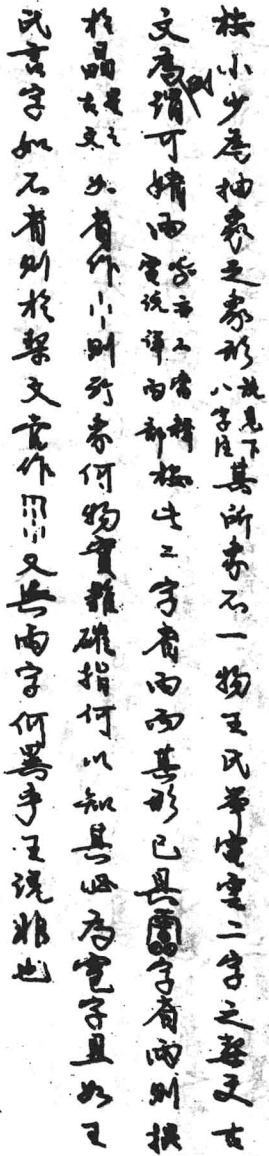 按小少為抽象之象形說見下八字注其所象不一物王氏舉電雲二字之契文古
文為谓可媾雨電說詳雨部按生二字省雨而其形已具字省雨則
於晶星之古文如省作小則所象何物實難確指何以知其必為電字且如王
氏言字如不省則於契文當作又與雨字何異乎王說非也